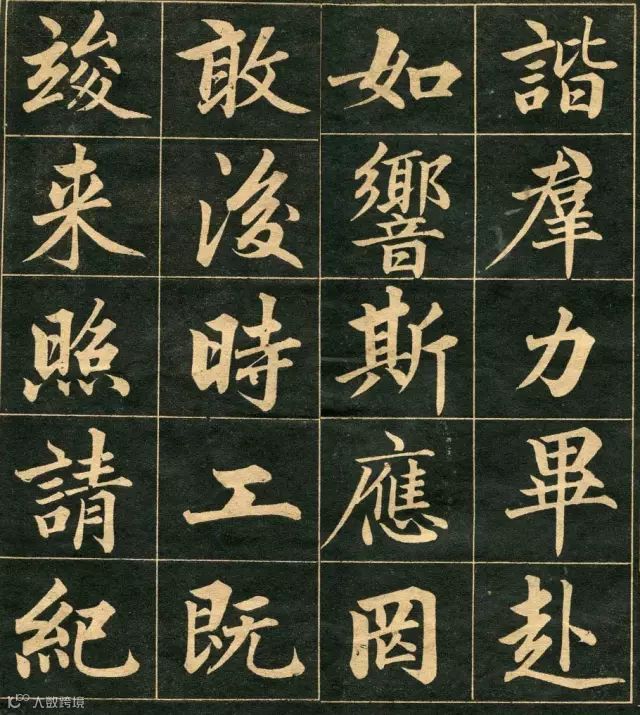 諧羣力畢赴
如響斯應罔
敢後時工既
竣来照請紀
人数跨境